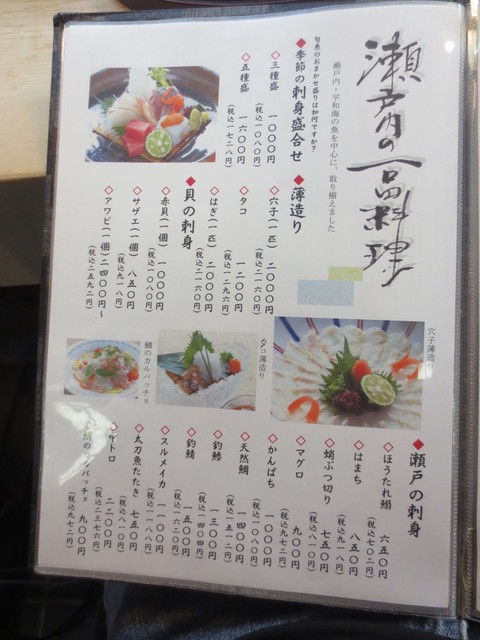 瀬戸内の一品料理
瀬戸内・宇和海の魚を中心に、取り揃えました
旬魚のおまかせ盛りは如何ですか?
◆季節の刺身盛合せ
◇三種盛 一〇〇〇円
(税込一〇八〇円)
◇五種盛 一六〇〇円
(税込一七二八円)
◆薄造り
◇穴子(一匹) 二〇〇〇円
(税込二一六〇円)
◇タコ 一二〇〇円
(税込一二九六円)
◇はぎ(一匹) 二〇〇〇円
(税込二一六〇円)
◆貝の刺身
◇赤貝(一個) 一〇〇〇円
(税込一〇八〇円)
◇サザエ(一個) 八五〇円
(税込九一八円)
◇アワビ(一個) 二四〇〇円~
(税込二五九二円)
穴子薄造り
タコ薄造り
鯛のカルパッチョ
◆瀬戸の刺身
◇ほうたれ鰯 六五〇円
(税込七〇二円)
◇はまち 八五〇円
(税込九一八円)
◇蛸ぶつ切り 七五〇円
(税込八一〇円)
◇マグロ 九〇〇円
(税込九七二円)
◇かんぱち 一〇〇〇円
(税込一〇八〇円)
◇天然鯛 一四〇〇円
(税込一五一二円)
◇釣鯵 一三〇〇円
(税込一四〇四円)
◇釣鯖 一五〇〇円
(税込一六二〇円)
◇スルメイカ 一一〇〇円
(税込一一八八円)
◇太刀魚たたき 七五〇円
(税込八一〇円)
トロ 二二〇〇円
(税込二三七六円)
鯛のカルパッチョ 九〇〇円
(税込九七二円)